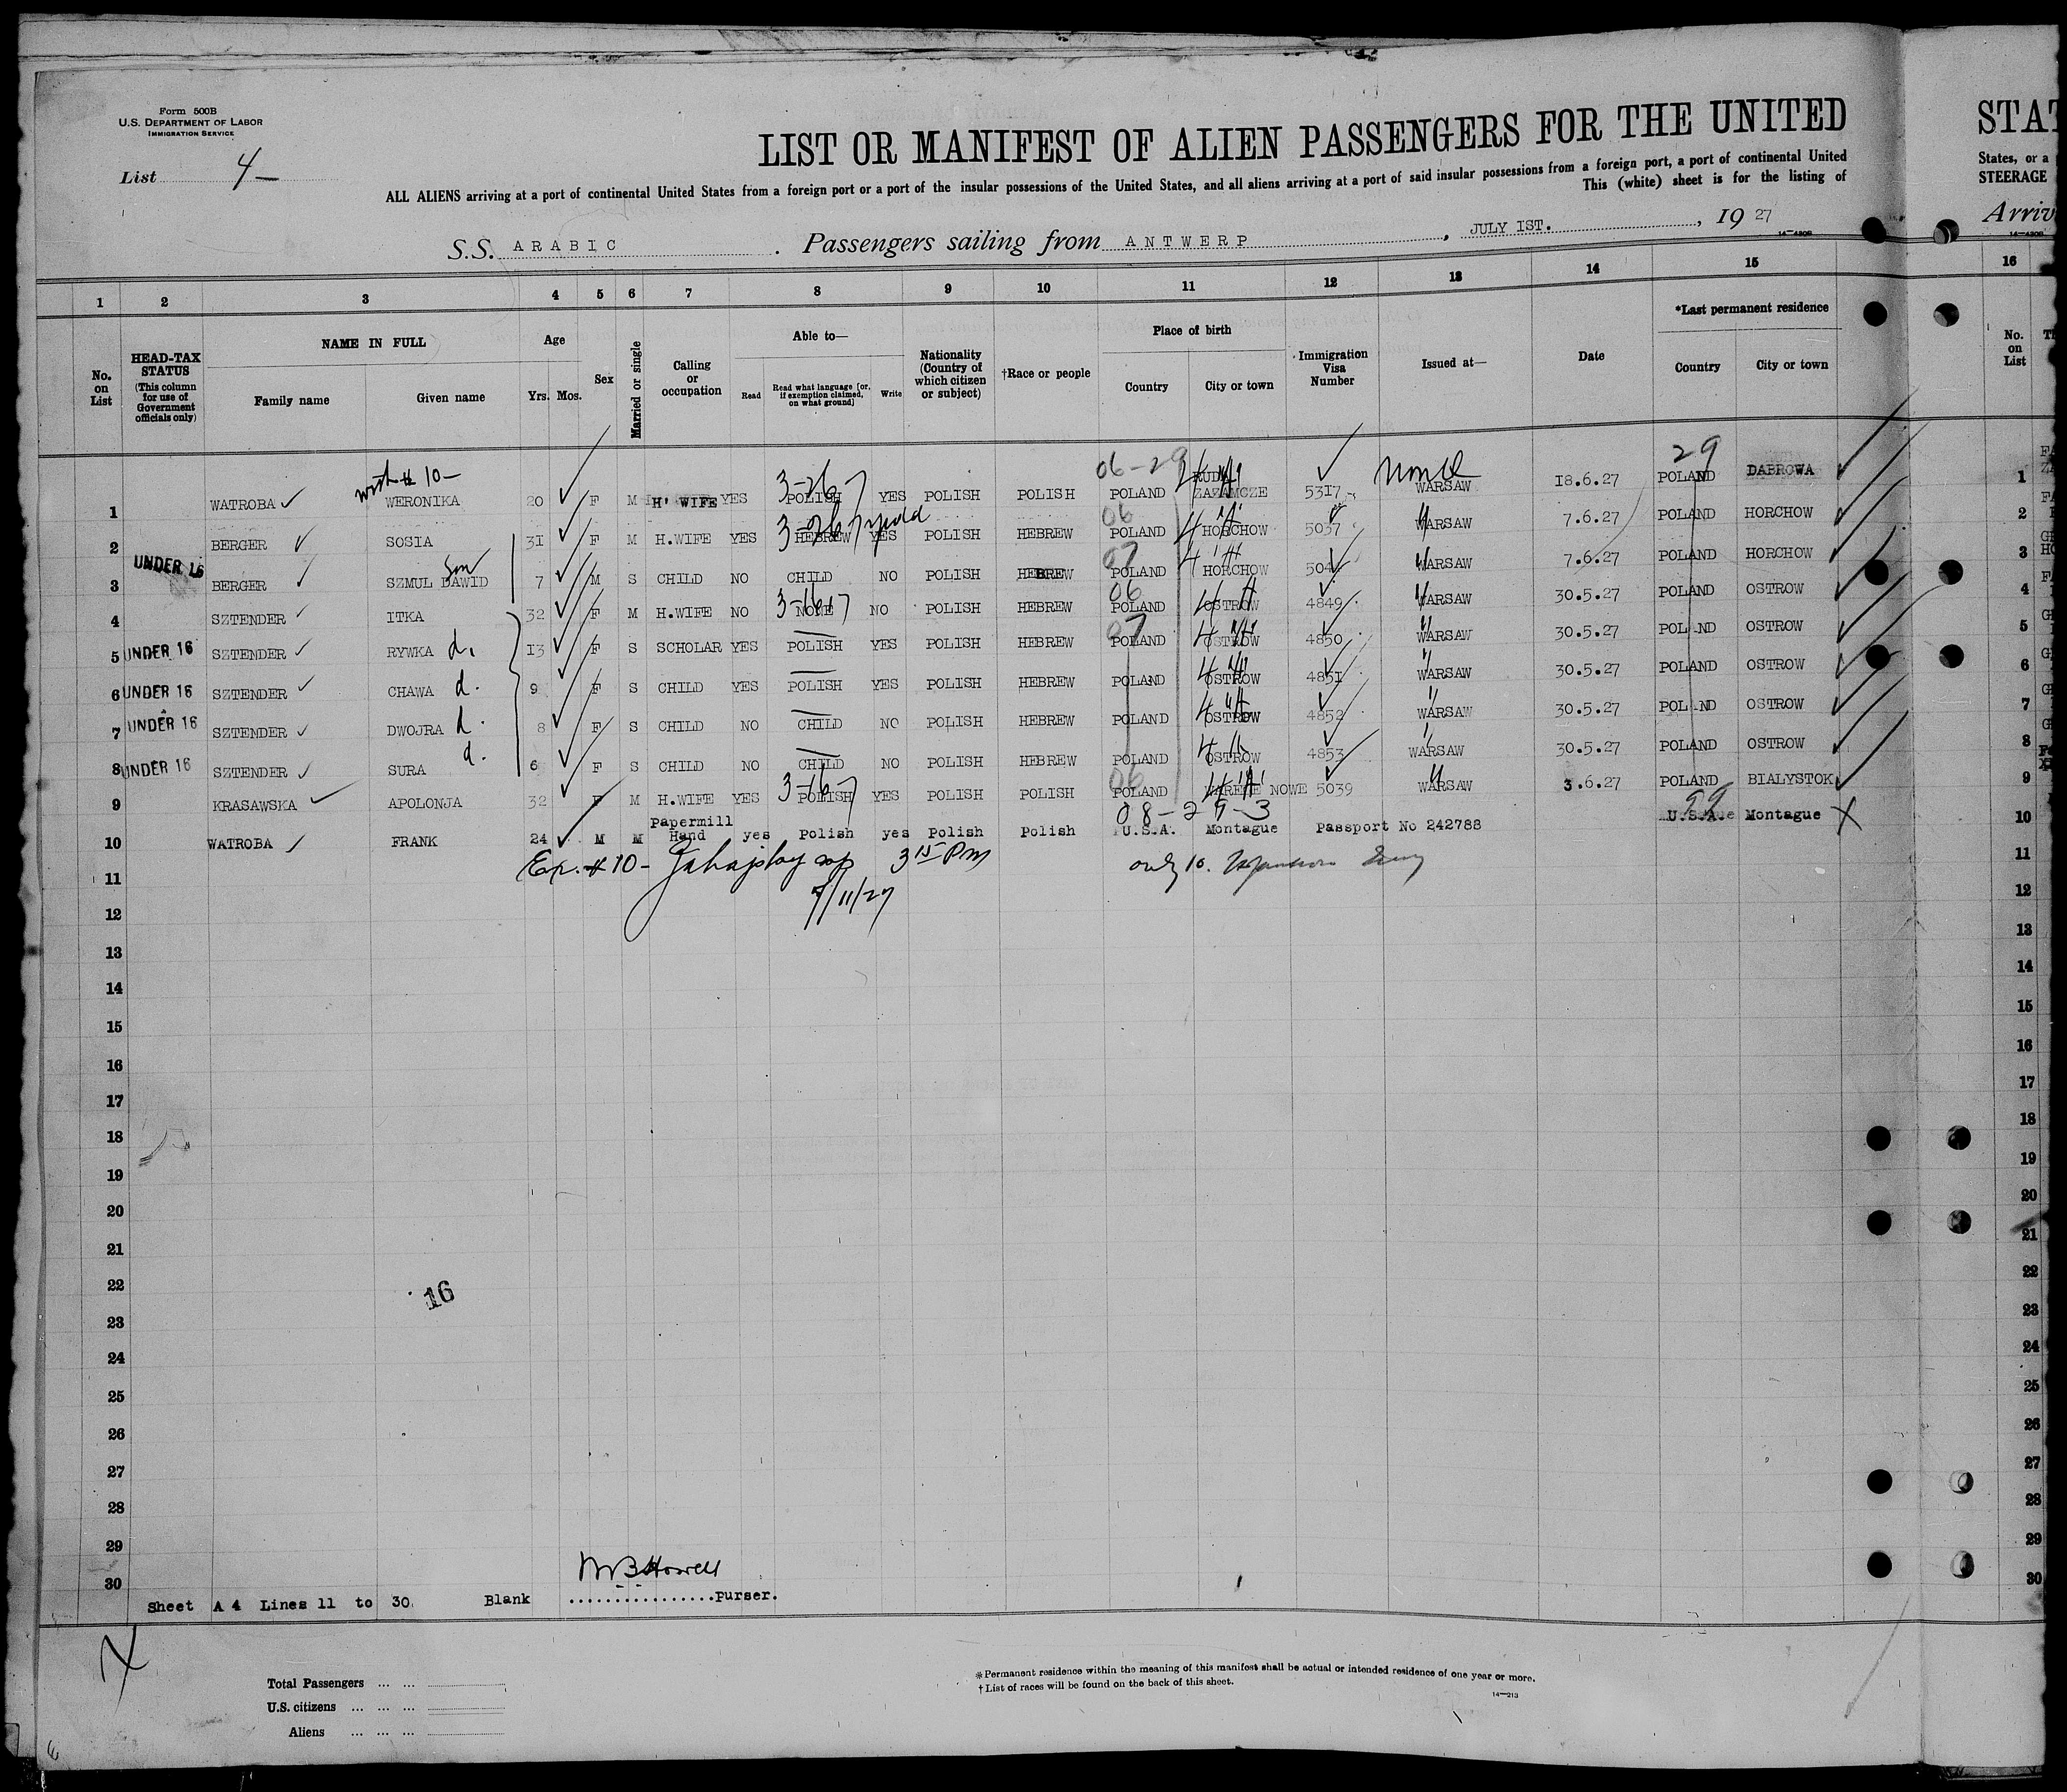 Form 500B
U.S. DEPARTMENT OF LABOR
IMMIGRATION SERVICE
List 4-
LIST OR MANIFEST OF ALIEN PASSENGERS FOR THE UNITED
ALL ALIENS arriving at a port of continental United States from a foreign port or a port of the insular possessions of the United States, and all aliens arriving at a port of said insular possessions from a foreign port, a port of continental United
This (white) sheet is for the listing of
S.S. ARABIC. Passengers sailing from ANTWERP, JULY IST., 1927
14-4208
STAT
States, or a
STEERAGE
Arriv
14-4208
1 2 3 4 5 6 7 8 9 10 11 12 13 14 15 16
No. on List
HEAD-TAX STATUS (This column for use of Government officials only)
NAME IN FULL
Family name Given name
Age
Yrs. Mos.
Sex
Married or single
Calling or occupation
Able to—
Read Read what language [or, if exemption claimed, on what ground] Write
Nationality (Country of which citizen or subject)
†Race or people
Place of birth
Country City or town
Immigration Visa Number
Issued at—
Date
*Last permanent residence
Country City or town
No. on List
with # 10- 3-26-7 06-29 29
1 WATROBA WERONIKA 20 F M H' WIFE YES POLISH YES POLISH POLISH POLAND 5317 WARSAW 18.6.27 POLAND DABROWA 1
3-26-7 yidd 06
2 BERGER SOSIA 31 F M H.WIFE YES HEBREW YES POLISH HEBREW POLAND HORCHOW 5037 WARSAW 7.6.27 POLAND HORCHOW 2
UNDER 16 son 07
3 BERGER SZMUL DAWID 7 M S CHILD NO CHILD NO POLISH HEBREW POLAND HORCHOW WARSAW 7.6.27 POLAND HORCHOW 3
3-16-7 06
4 SZTENDER ITKA 32 F M H.WIFE NO NONE NO POLISH HEBREW POLAND OSTROW 4849 WARSAW 30.5.27 POLAND OSTROW 4
07
5 UNDER 16 SZTENDER RYWKA d. 13 F S SCHOLAR YES POLISH YES POLISH HEBREW POLAND OSTROW 4850 WARSAW 30.5.27 POLAND OSTROW 5
6 UNDER 16 SZTENDER CHAWA d. 9 F S CHILD YES POLISH YES POLISH HEBREW POLAND OSTROW 4851 WARSAW 30.5.27 POLAND OSTROW 6
7 UNDER 16 SZTENDER DWOJRA d. 8 F S CHILD NO CHILD NO POLISH HEBREW POLAND OSTROW 4852 WARSAW 30.5.27 POLAND OSTROW 7
8 UNDER 16 SZTENDER SURA d. 6 F S CHILD NO CHILD NO POLISH HEBREW POLAND OSTROW 4853 WARSAW 30.5.27 POLAND OSTROW 8
3-16-7 06
9 KRASAWSKA APOLONJA 32 F M H.WIFE YES POLISH YES POLISH POLISH POLAND NOWE 5039 WARSAW 3.6.27 POLAND BIALYSTOK 9
08-29-3 99
10 WATROBA FRANK 24 M M Papermill Hand yes Polish yes Polish Polish U.S.A. Montague Passport No 242788 U.S.A. Montague 10
Ex. # 10- 3 15 PM only 10.
7/11/27
11 11
12 12
13 13
14 14
15 15
16 16
17 17
18 18
19 19
20 20
21 21
22 22
16
23 23
24 24
25 25
26 26
27 27
28 28
29 29
30 30
Sheet A4 Lines 11 to 30 Blank ................purser.
Total Passengers
U.S. citizens
Aliens
*Permanent residence within the meaning of this manifest shall be actual or intended residence of one year or more.
†List of races will be found on the back of this sheet.
14-213